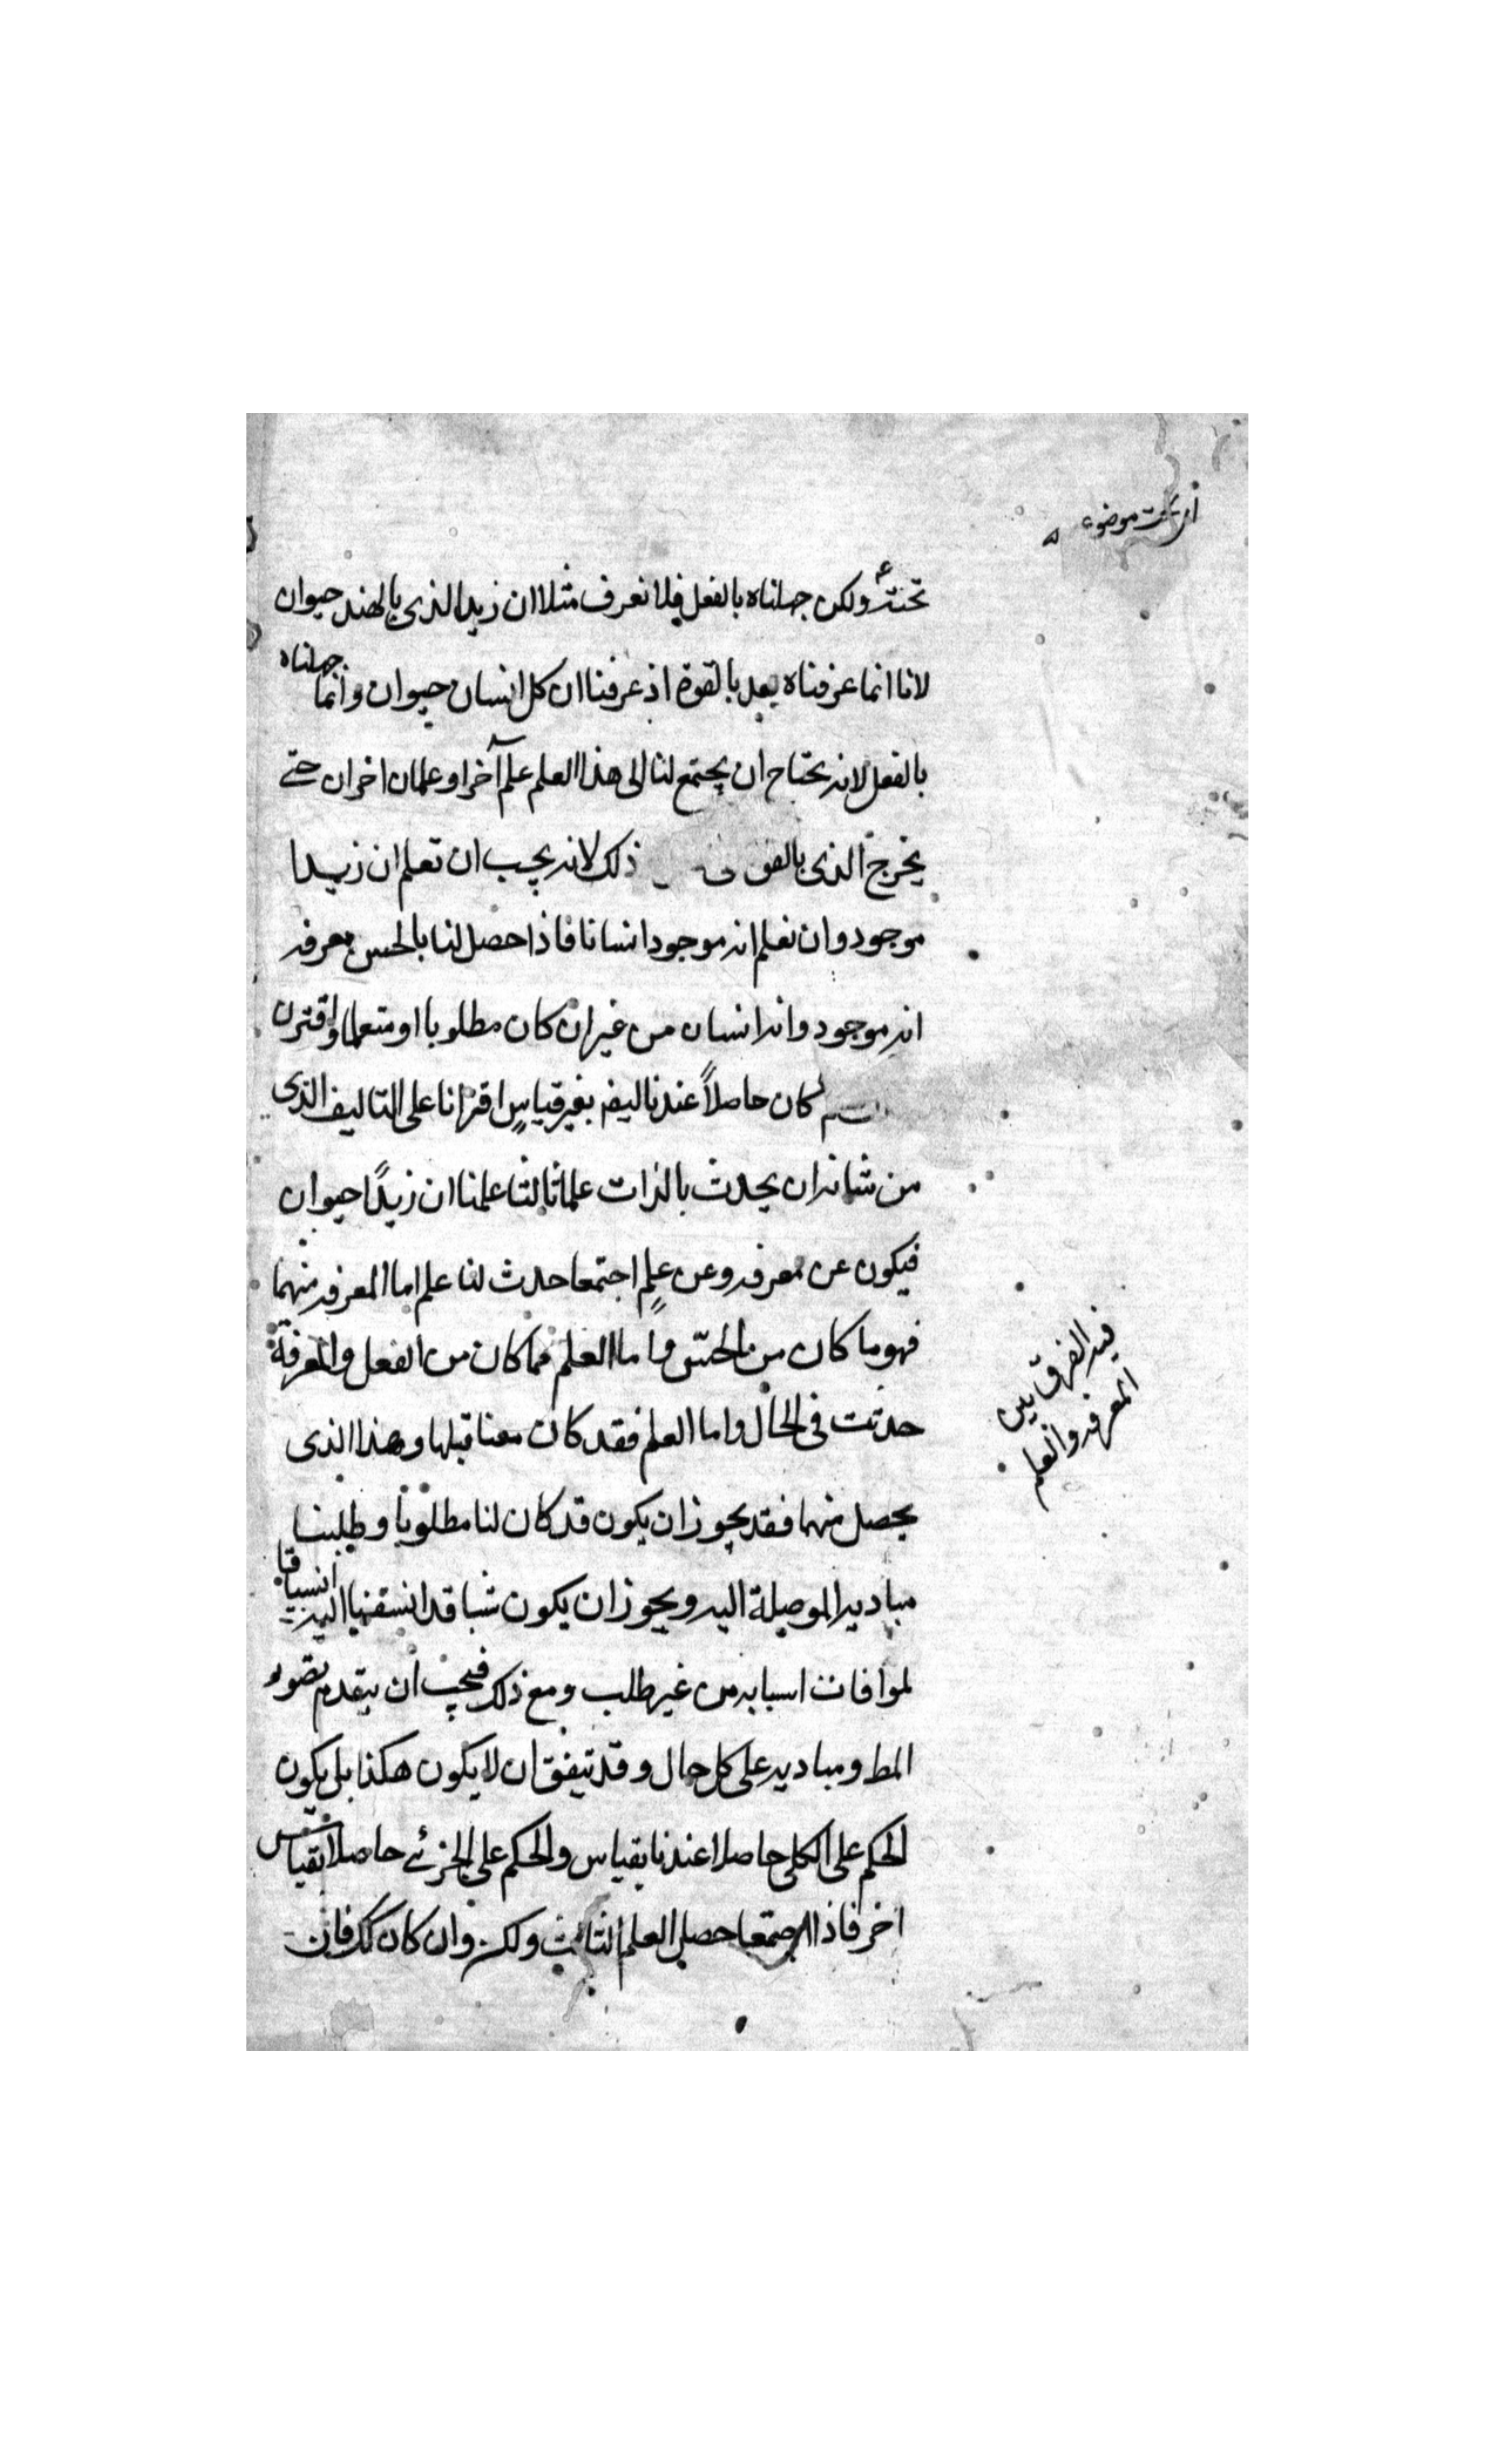 أي تحت موضوعه
تحته ولكن جهلناه بالفعل فلا نعرف مثلا ان زيدا الذى بالهند حيوان
لانا انما عرفناه بعد بالقوة اذ عرفنا ان كل انسان حيوان وانما جهلناه
بالفعل لانه يحتاج ان يجتمع لنا الى هذا العلم علم آخر او علمان اخران حتى
يخرج الذى بالقو ذلك لانه يجب ان تعلم ان زيدا
موجود وان نعلم انه موجود انسانا فاذا حصل لنا بالحس معرفه
انه موجود وانه انسان من غير ان كان مطلوبا او متعلما واقترن
كان حاصلاً عندنا ليفه بغير قياسٍ اقترانا على التاليف الذى
من شانه ان يحدث بالذات علما ثالثا علمنا ان زيدًا حيوان
فيكون عن معرفه وعن علمٍ اجتمعا حدث لنا علم اما المعرفه منهما
فهو ما كان من الحسّ واما العلم فما كان من العقل والمعرفة
حدثت فى الحال واما العلم فقد كان معنا قبلها وهذا الذى
يحصل منهما فقد يجوز ان يكون قد كان لنا مطلوبا وطلبنا
مباديه الموصلة اليه ويجوز ان يكون شيا قد انسقنا اليه انسياقا
لموافات اسبابه من غير طلب ومع ذلك فيجب ان يتقدم تصور
المط ومباديه على كل حال وقد يتفق ان لا يكون هكذا بل يكون
الحكم على الكلى حاصلا عندنا بقياس والحكم على الجزئى حاصلا بقياس
اخر فاذا اجتمعا حصل العلم الثالث ولكن وان كان كك فان
فيه الفرق بين
المعرفه والعلم